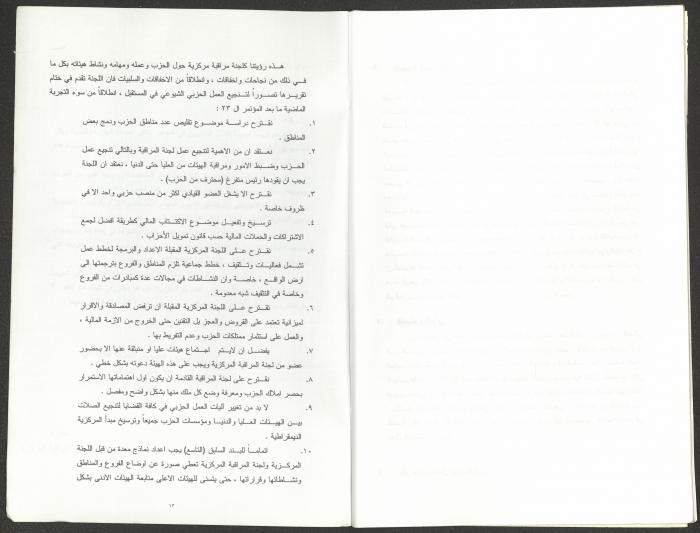 هذه رؤيتنا كلجنة مراقبة مركزية حول الحزب وعمله ومهامه ونشاط هيئاته بكل ما
في ذلك من نجاحات واخفاقات ، وانطلاقاً من الاخفاقات والسلبيات فان اللجنة تقدم في ختام
تقريرها تصوراً لتنجيع العمل الحزبي الشيوعي في المستقبل ، انطلاقاً من سوء التجربة
الماضية ما بعد المؤتمر ال ٢٣ :
١. نقترح دراسة موضوع تقليص عدد مناطق الحزب ودمج بعض
المناطق .
٢. نعتقد ان من الاهمية لتنجيع عمل لجنة المراقبة وبالتالي تنجيع عمل
الحزب وضبط الامور ومراقبة الهيئات من العليا حتى الدنيا ، نعتقد ان اللجنة
يجب ان يقودها رئيس متفرغ (محترف من الحزب) .
٣. نقترح الا يشغل العضو القيادي اكثر من منصب حزبي واحد الا في
ظروف خاصة .
٤. ترسيخ وتفعيل موضوع الاكتتاب المالي كطريقة افضل لجمع
الاشتراكات والحملات المالية حسب قانون تمويل الأحزاب .
٥. نقترح على اللجنة المركزية المقبلة الاعداد والبرمجة لخطط عمل
تشمل فعاليات وتثقيف ، خطط جماعية تلزم المناطق والفروع بترجمتها الى
ارض الواقع ، خاصة وان النشاطات في مجالات عدة كمبادرات من الفروع
وخاصة في التثقيف شبه معدومة .
٦. نقترح على اللجنة المركزية المقبلة ان ترفض المصادقة والاقرار
لميزانية تعتمد على القروض والعجز بل التقنين حتى الخروج من الازمة المالية ،
والعمل على استثمار ممتلكات الحزب وعدم التفريط بها .
٧. يفضل ان لايتم اجتماع هيئات عليا او منبثقة عنها الا بحضور
عضو من لجنة المراقبة المركزية ويجب على هذه الهيئة دعوته بشكل خطي .
٨. نقترح على لجنة المراقبة القادمة ان يكون اول اهتماماتها الاستمرار
بحصر املاك الحزب ومعرفة وضع كل ملك منها بشكل واضح ومفصل .
٩. لا بد من تغيير آليات العمل الحزبي في كافة القضايا لتنجيع الصلات
بين الهيئات العليا والدنيا ومؤسسات الحزب جميعاً وترسيخ مبدأ المركزية
الديمقراطية .
١٠. اتماماً للبند السابق (التاسع) يجب اعداد نماذج معدة من قبل اللجنة
المركزية ولجنة المراقبة المركزية تعطي صورة عن اوضاع الفروع والمناطق
ونشاطاتها وقراراتها ، حتى يتسنى للهيئات الاعلى متابعة الهيئات الادنى بشكل
١٣